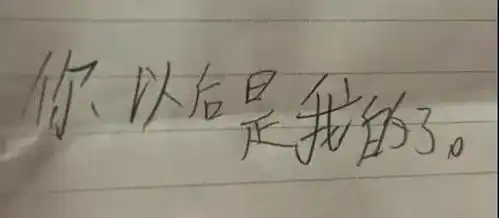 你、以后是我的了。